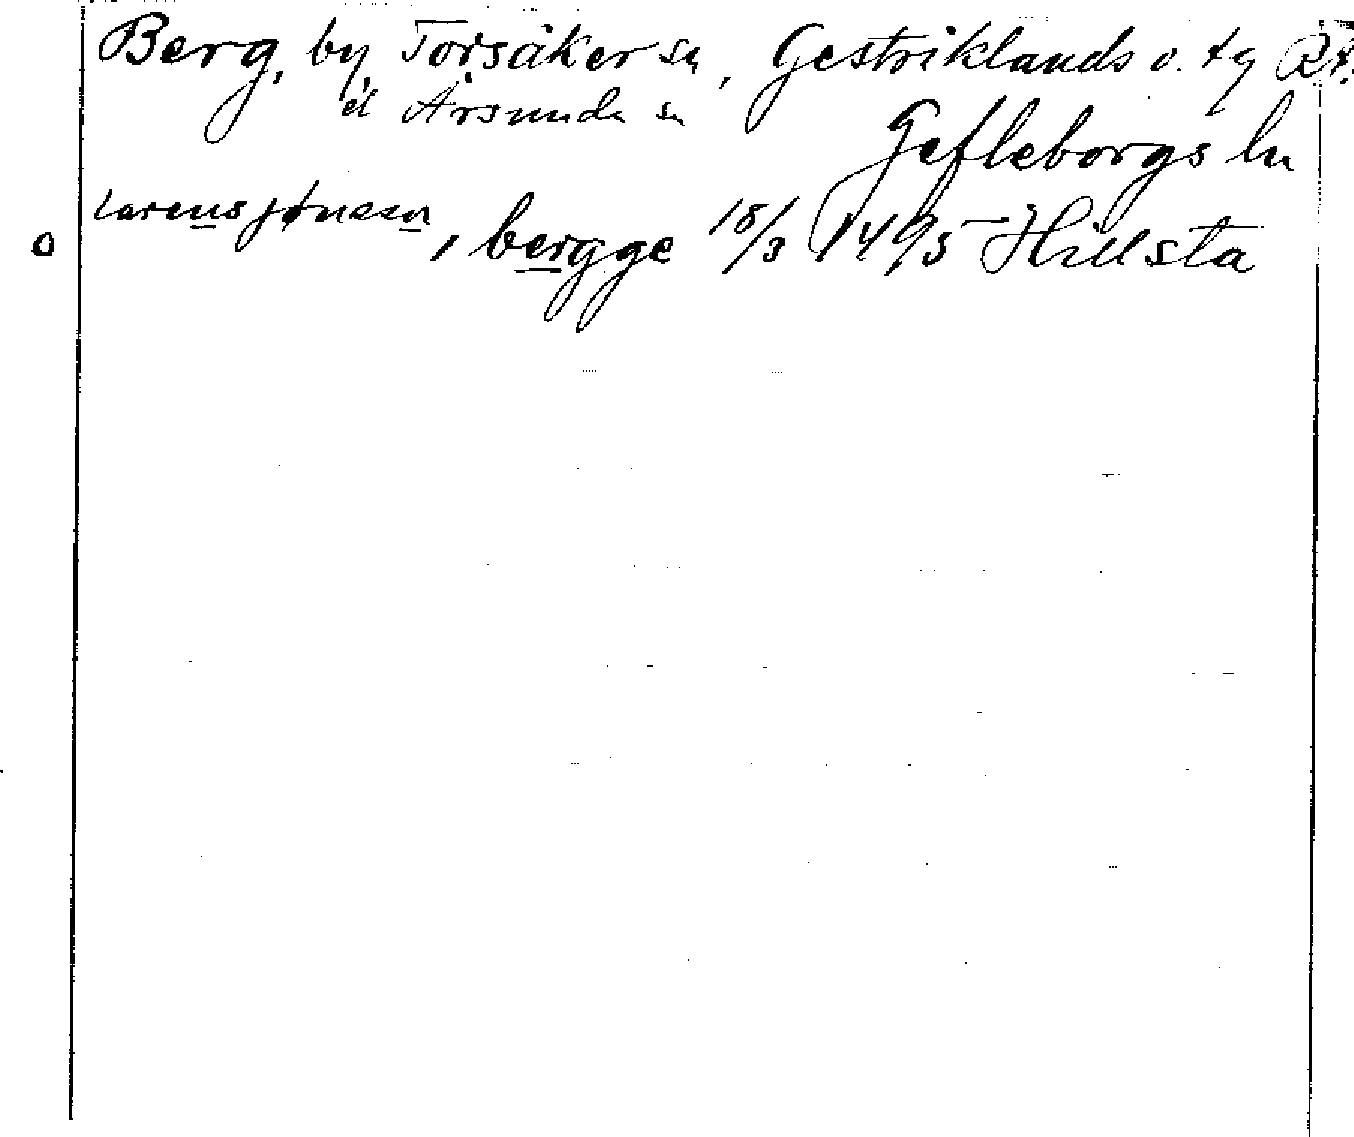 Berg, by, Torsåker sn, Gestriklands ö. tg
el Årsunda sn
Gefleborgs ln
larens jønsson, bergge 18/3 1495 Hillsta
o